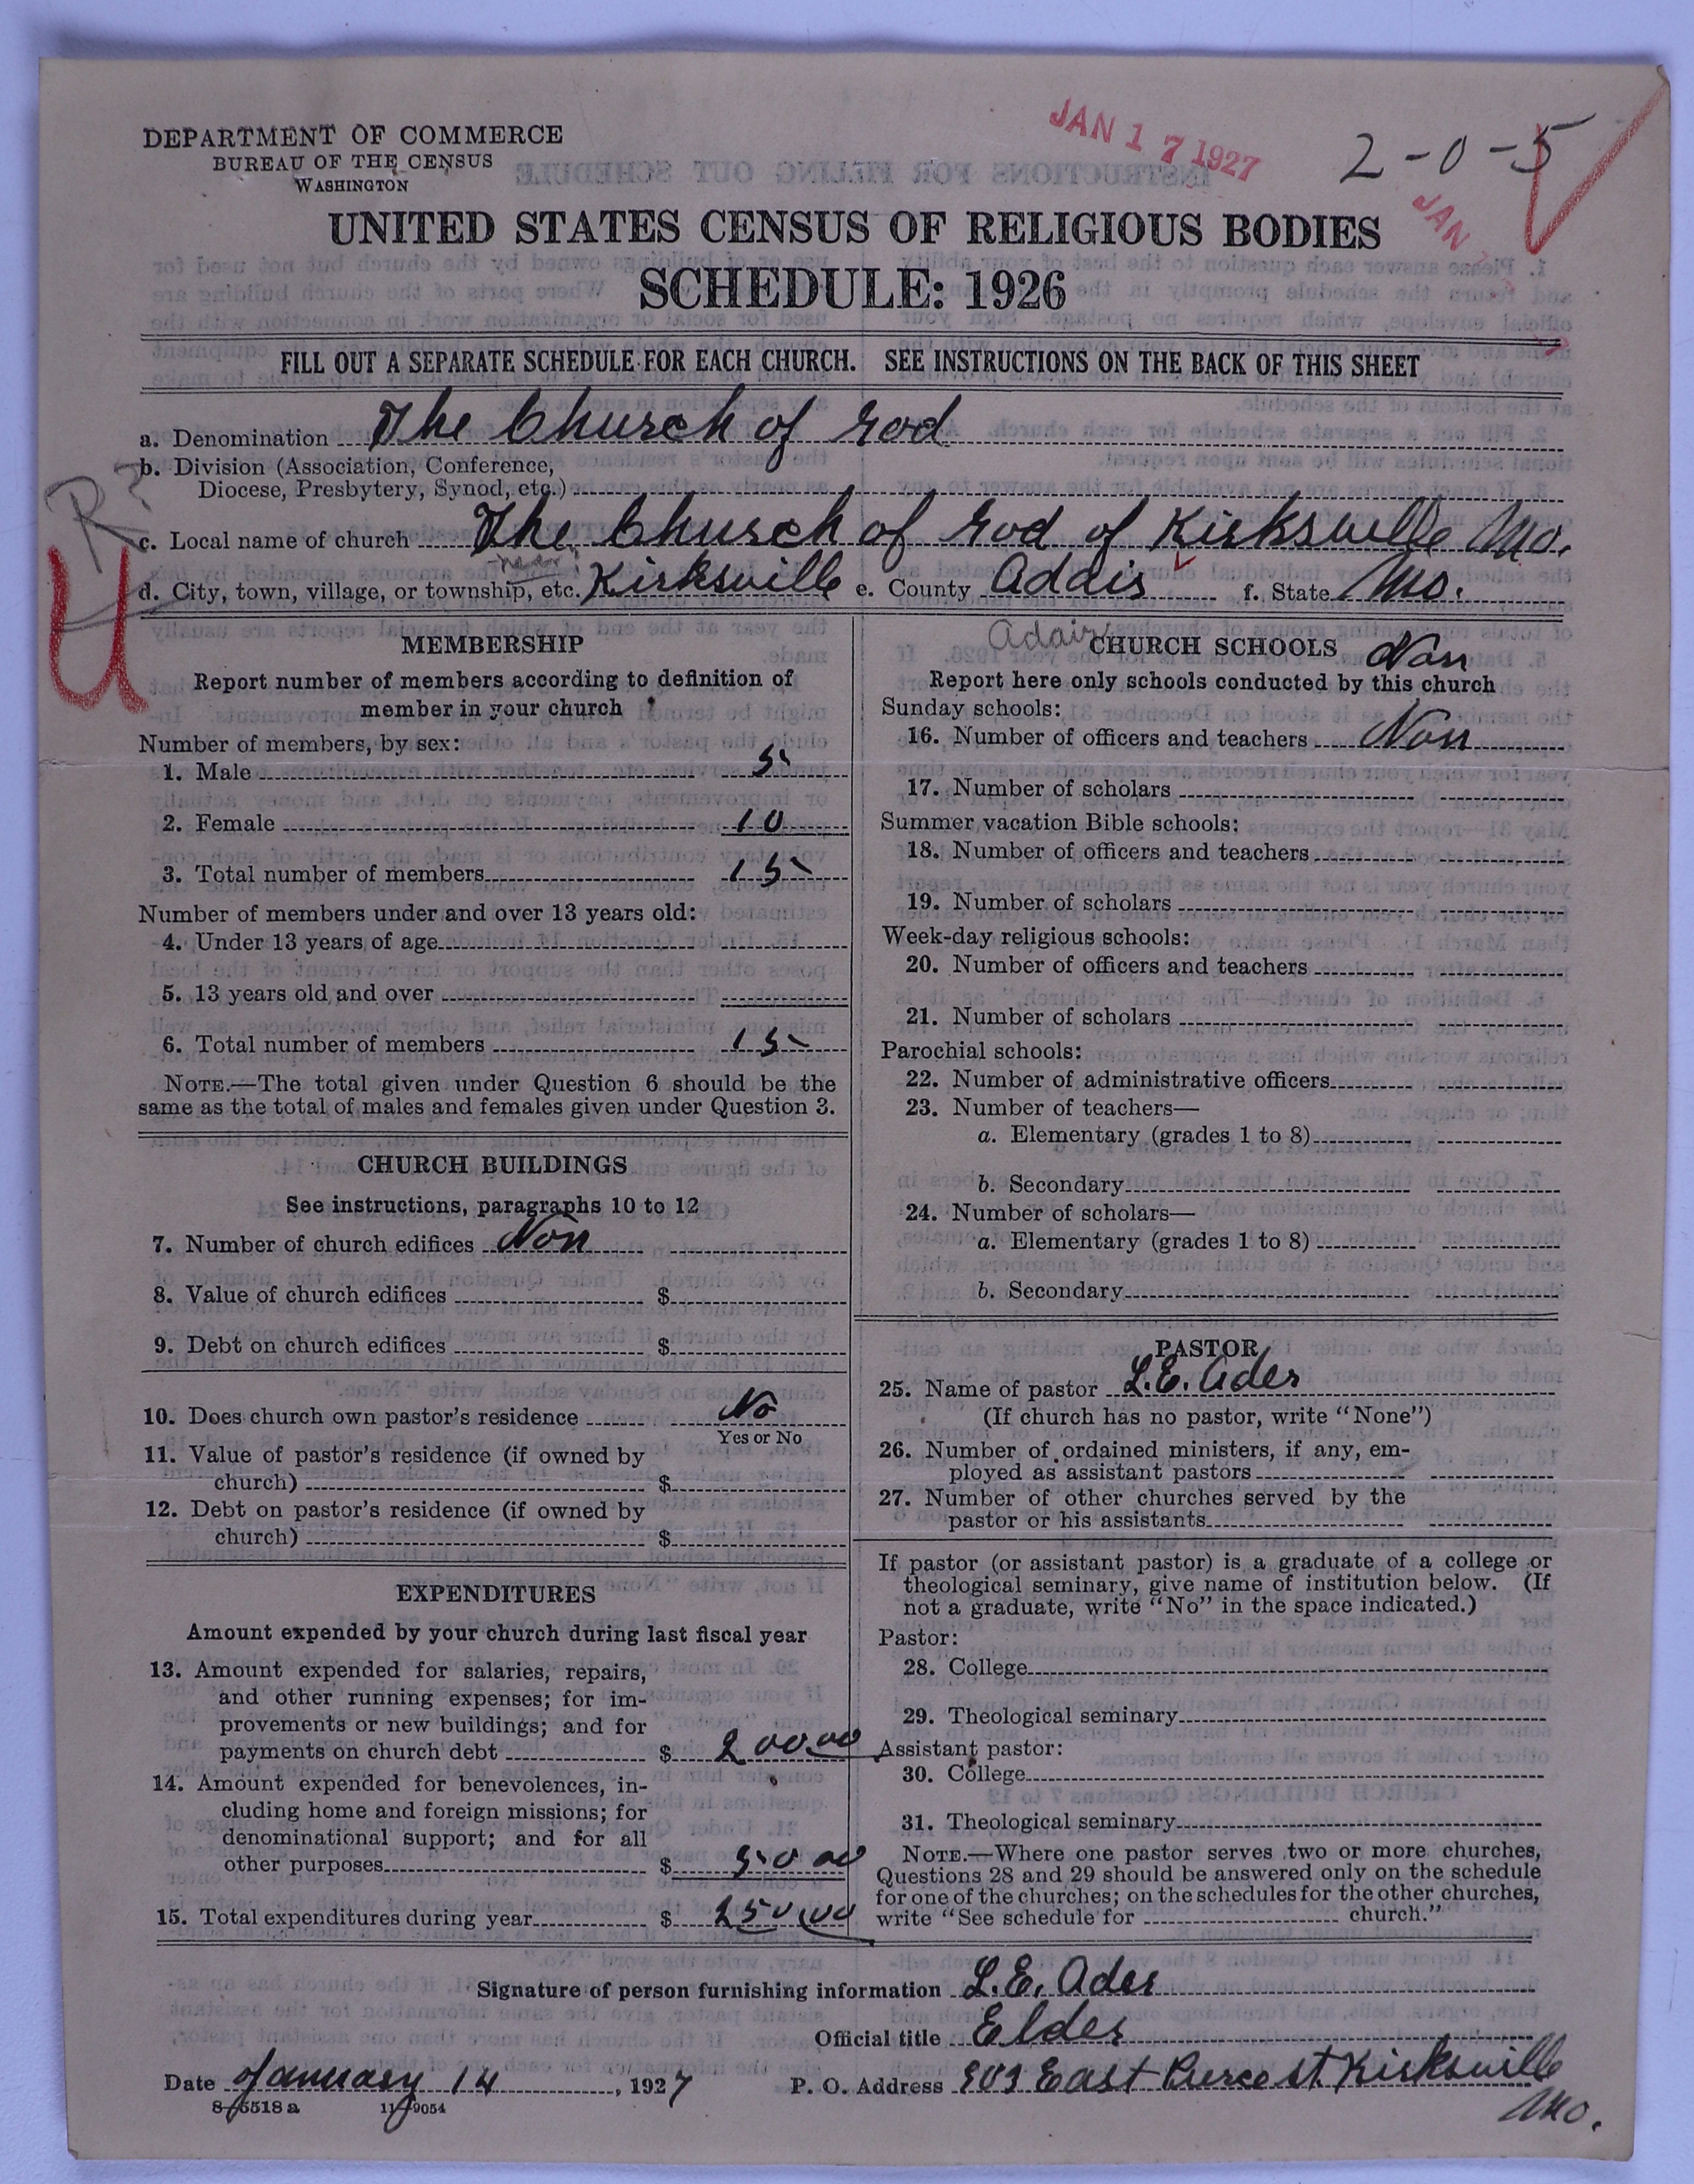 DEPARTMENT OF COMMERCE
BUREAU OF THE CENSUS
WASHINGTON
JAN 17 1927
2-0-5
JAN
UNITED STATES CENSUS OF RELIGIOUS BODIES
SCHEDULE: 1926
FILL OUT A SEPARATE SCHEDULE FOR EACH CHURCH. SEE INSTRUCTIONS ON THE BACK OF THIS SHEET
a. Denomination The Church of God
b. Division (Association, Conference,
Diocese, Presbytery, Synod, etc.)
R?
c. Local name of church The Church of God of Kirksville Mo.
U
d. City, town, village, or township, etc. Kirksville e. County Adair f. State Mo.
Adair
MEMBERSHIP
Report number of members according to definition of
member in your church
Number of members, by sex:
1. Male 5
2. Female 10
3. Total number of members 15
Number of members under and over 13 years old:
4. Under 13 years of age
5. 13 years old and over
6. Total number of members 15
NOTE.—The total given under Question 6 should be the
same as the total of males and females given under Question 3.
CHURCH BUILDINGS
See instructions, paragraphs 10 to 12
7. Number of church edifices Non
8. Value of church edifices $
9. Debt on church edifices $
10. Does church own pastor's residence No
Yes or No
11. Value of pastor's residence (if owned by
church) $
12. Debt on pastor's residence (if owned by
church) $
EXPENDITURES
Amount expended by your church during last fiscal year
13. Amount expended for salaries, repairs,
and other running expenses; for im-
provements or new buildings; and for
payments on church debt $ 200.00
14. Amount expended for benevolences, in-
cluding home and foreign missions; for
denominational support; and for all
other purposes $ 50 00
15. Total expenditures during year $ 250.00
CHURCH SCHOOLS Non
Report here only schools conducted by this church
Sunday schools:
16. Number of officers and teachers Non
17. Number of scholars
Summer vacation Bible schools:
18. Number of officers and teachers
19. Number of scholars
Week-day religious schools:
20. Number of officers and teachers
21. Number of scholars
Parochial schools:
22. Number of administrative officers
23. Number of teachers—
a. Elementary (grades 1 to 8)
b. Secondary
24. Number of scholars—
a. Elementary (grades 1 to 8)
b. Secondary
PASTOR
25. Name of pastor L.E. Ader
(If church has no pastor, write "None")
26. Number of ordained ministers, if any, em-
ployed as assistant pastors
27. Number of other churches served by the
pastor or his assistants
If pastor (or assistant pastor) is a graduate of a college or
theological seminary, give name of institution below. (If
not a graduate, write "No" in the space indicated.)
Pastor:
28. College
29. Theological seminary
Assistant pastor:
30. College
31. Theological seminary
NOTE.—Where one pastor serves two or more churches,
Questions 28 and 29 should be answered only on the schedule
for one of the churches; on the schedules for the other churches,
write "See schedule for church."
Signature of person furnishing information L.E. Ader
Official title Elder
Date January 14, 1927 P. O. Address 903 East Pierce st. Kirksville
Mo.
8-5518a 11-9054